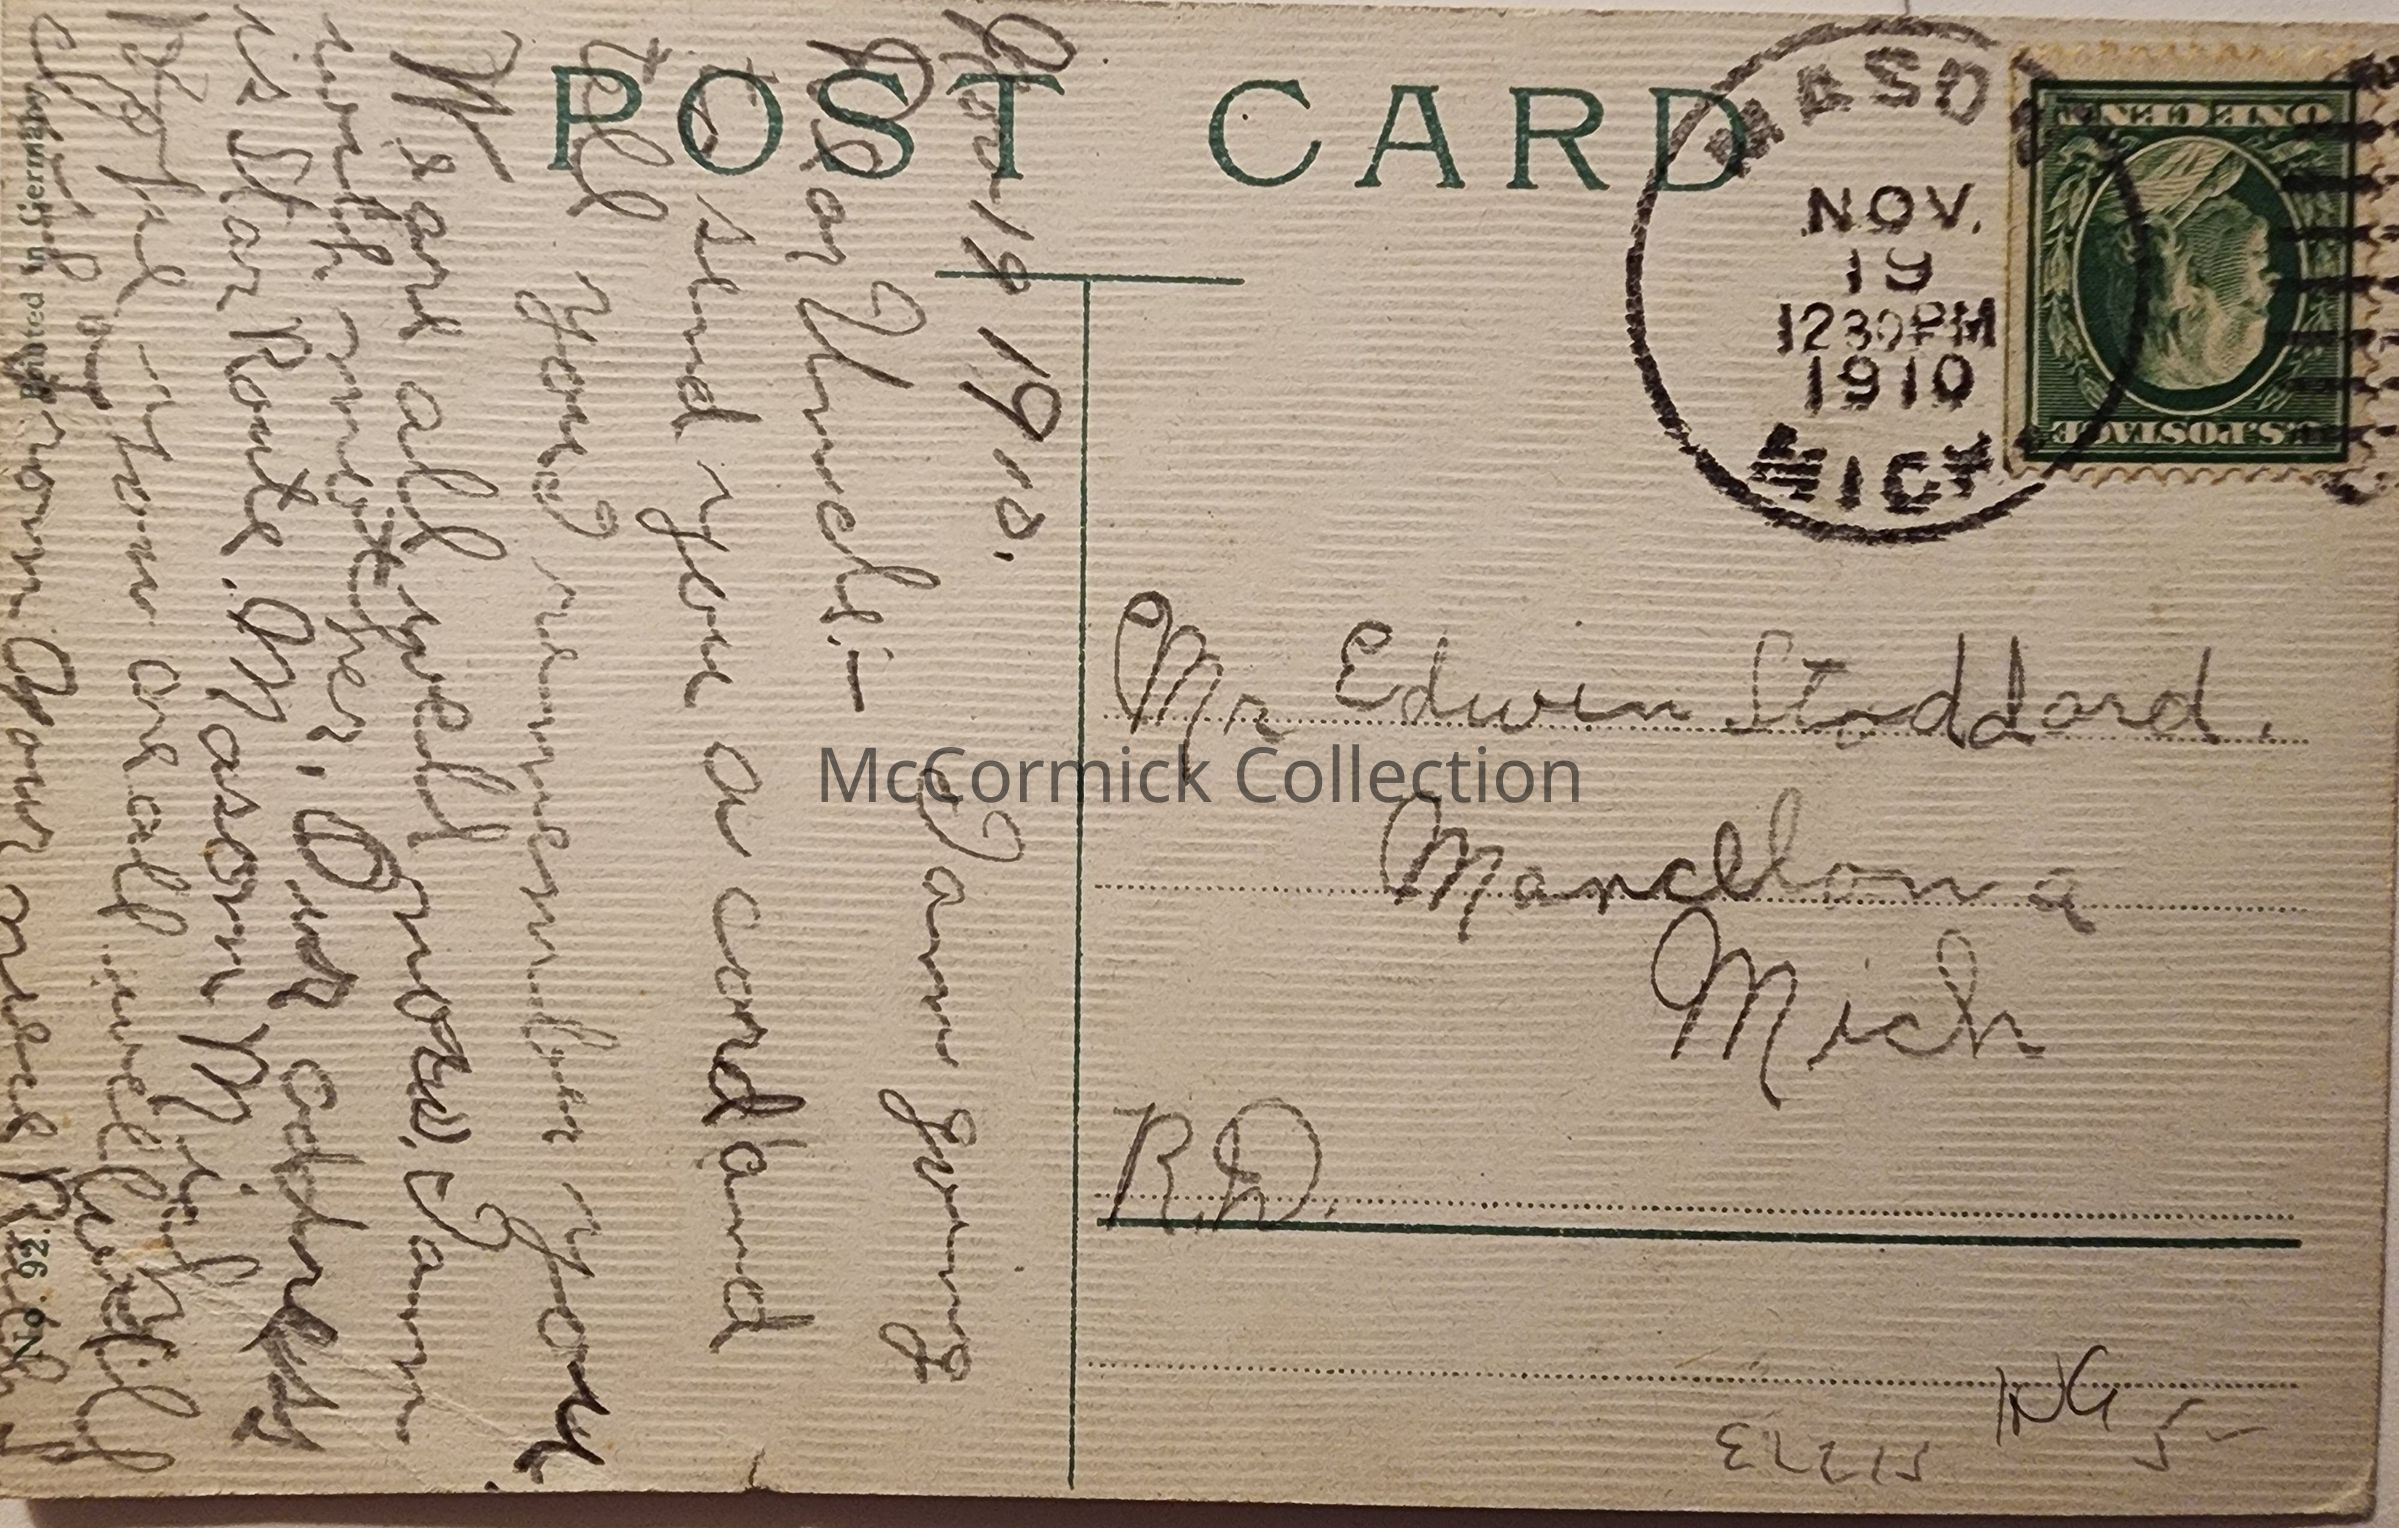 POST CARD
MASON
NOV.
19
1230PM
1910
MICH
U.S. POSTAGE
ONE CENT
Mr Edwin Stoddard.
Mancelona
Mich
R.D.
McCormick Collection
Nov 19 1910.
Dear Uncle:— I am going
to send you a card and
tell you I remember you.
We are all well I am
with mother. Our address
is Star Route. Mason Mich
Hope you are all well
from your niece
Printed in Germany
No. 92.